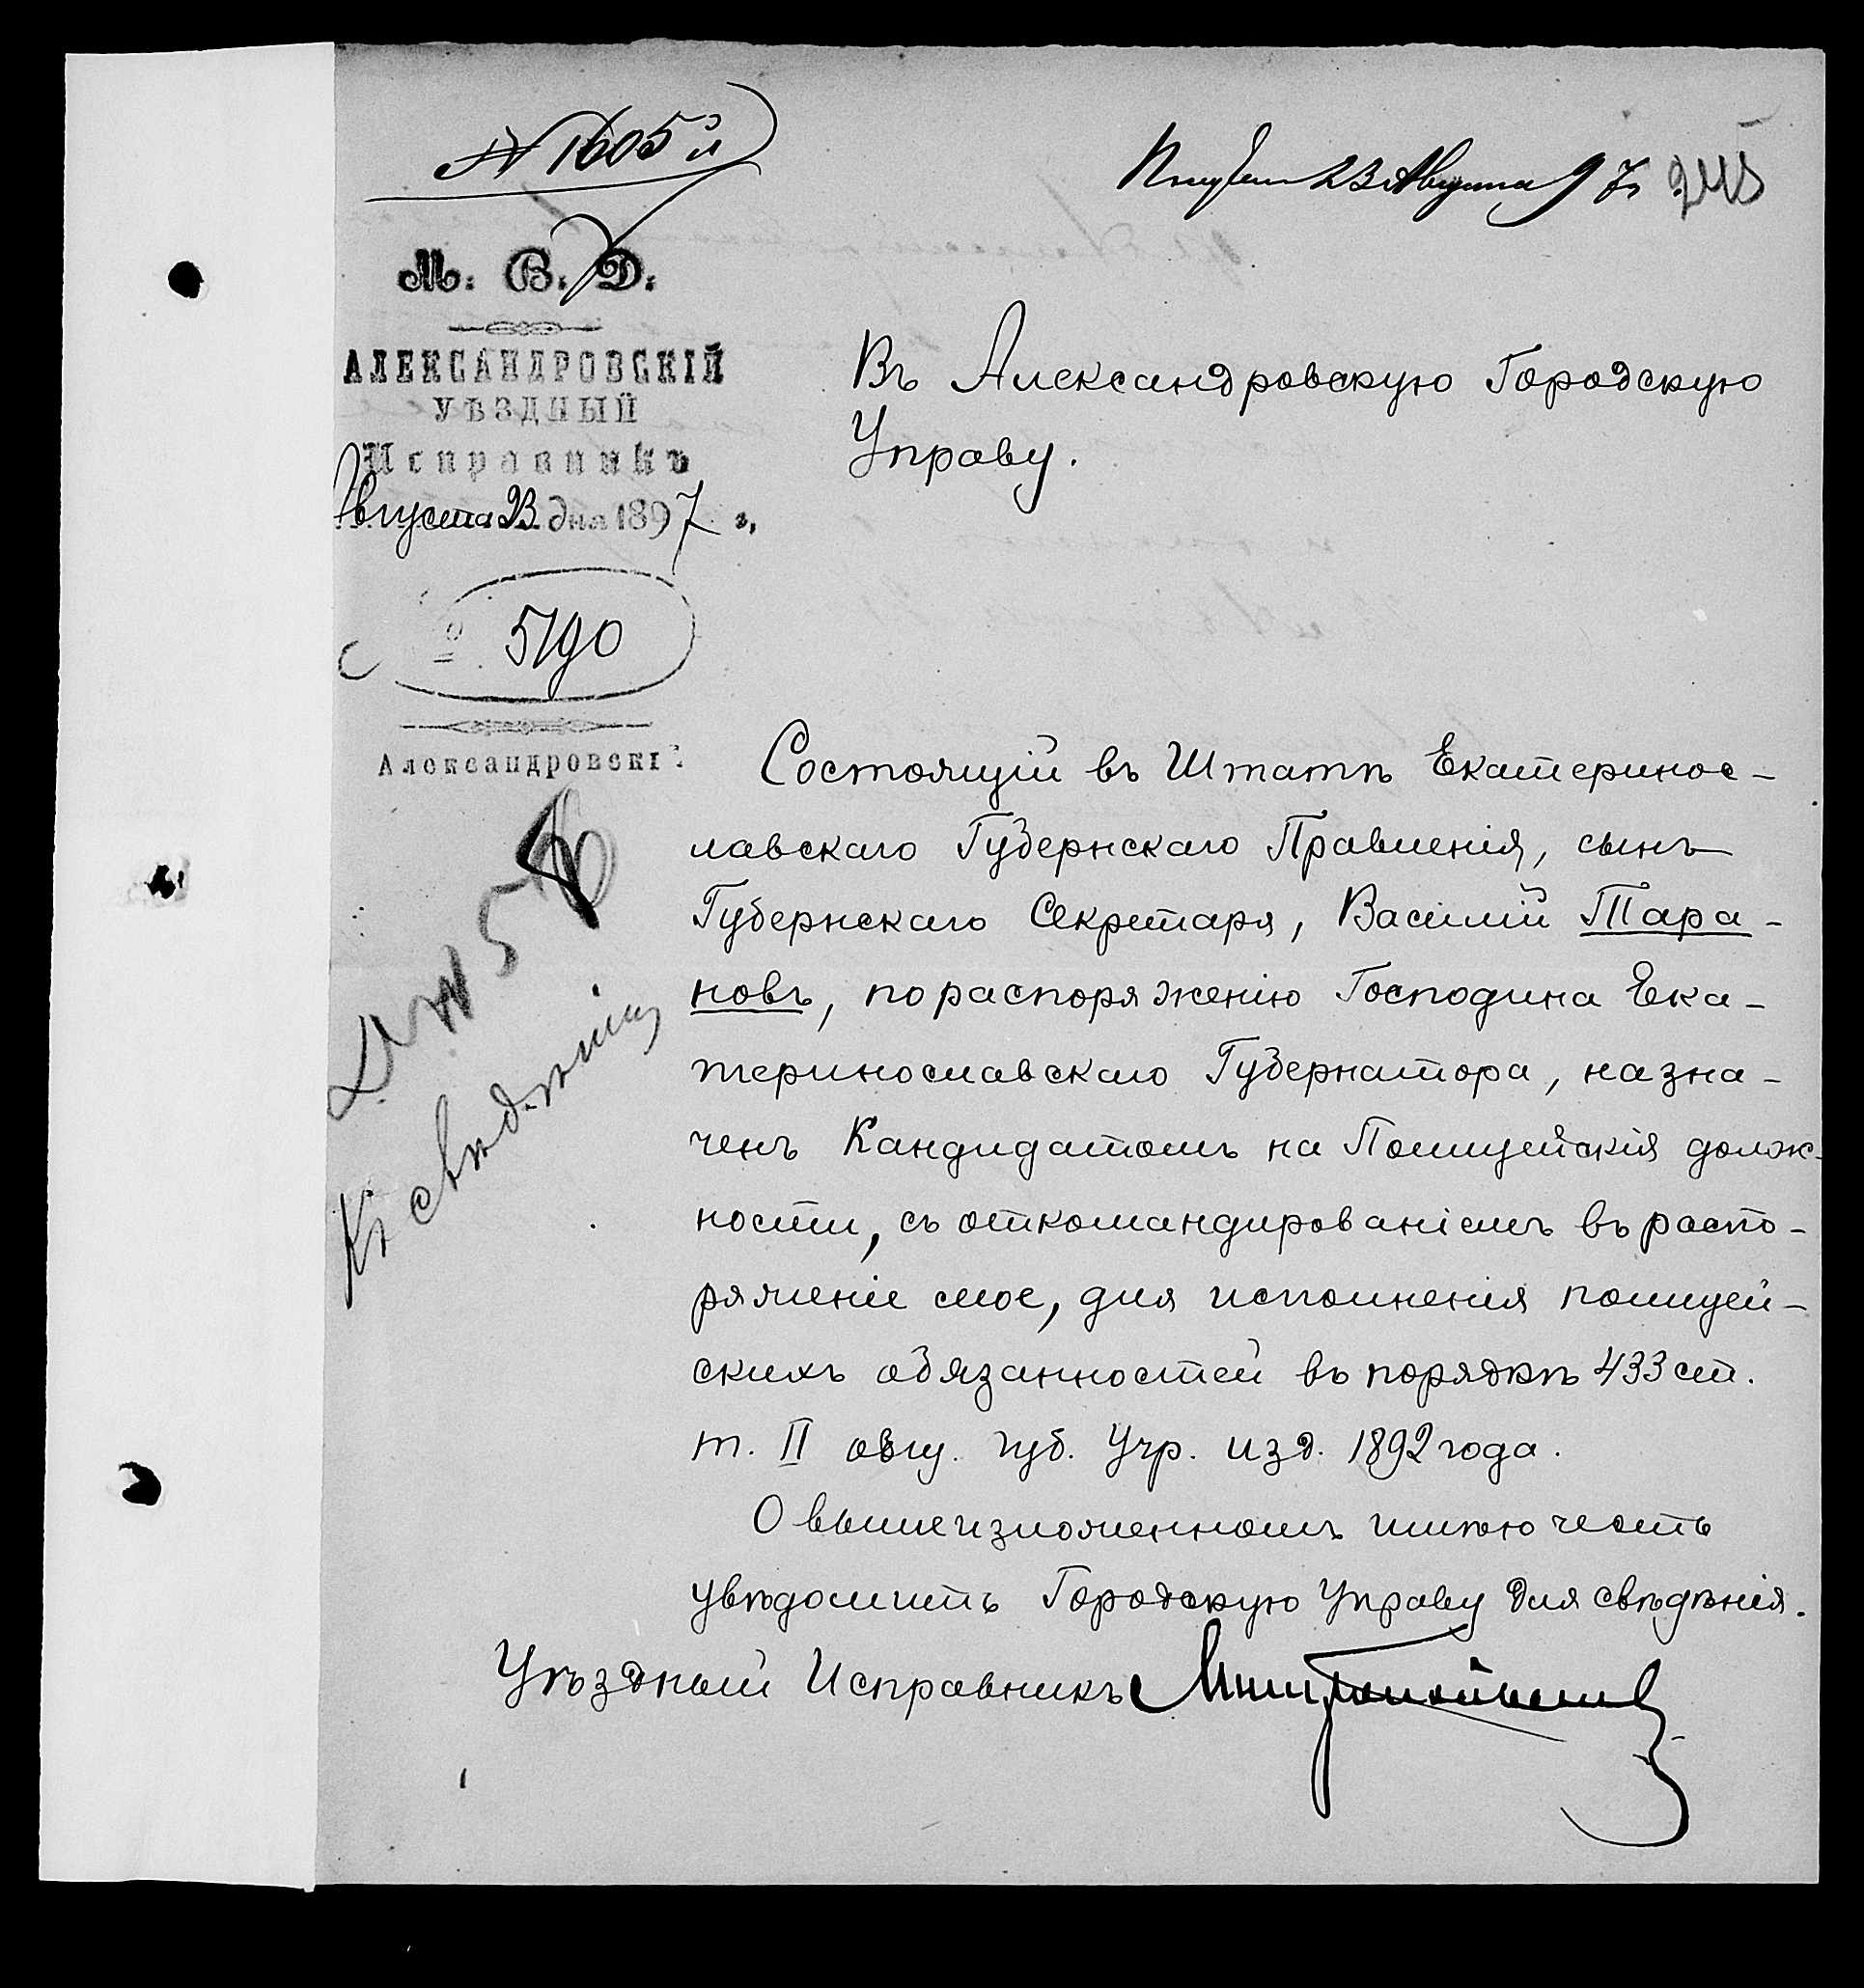 № 1605
23 Августа 97 г.
245
М. В. Д.
АЛЕКСАНДРОВСКІЙ
УѢЗДНЫЙ
Исправникъ
Августа 23 дня 1897 г.
5790
Александровскі
Въ Александровскую Городскую
Управу.
Состоящій въ Штатѣ Екатеринос-
лавскаго Губернскаго Правленія, сынъ
Губернскаго Секретаря, Василій Тара-
новъ, по распоряженію Господина Ека-
теринославскаго Губернатора, назна-
ченъ Кандидатомъ на Полицейскія долж-
ности, съ откомандированіемъ въ распо-
ряженіе мое, для исполненія полицей-
скихъ обязанностей въ порядкѣ 433 ст.
т. II общ. губ. Учр. изд. 1892 года.
О вышеизложенномъ имѣю честь
увѣдомить Городскую Управу для свѣдѣнія.
Уѣздный Исправникъ
Къ свѣдѣнію